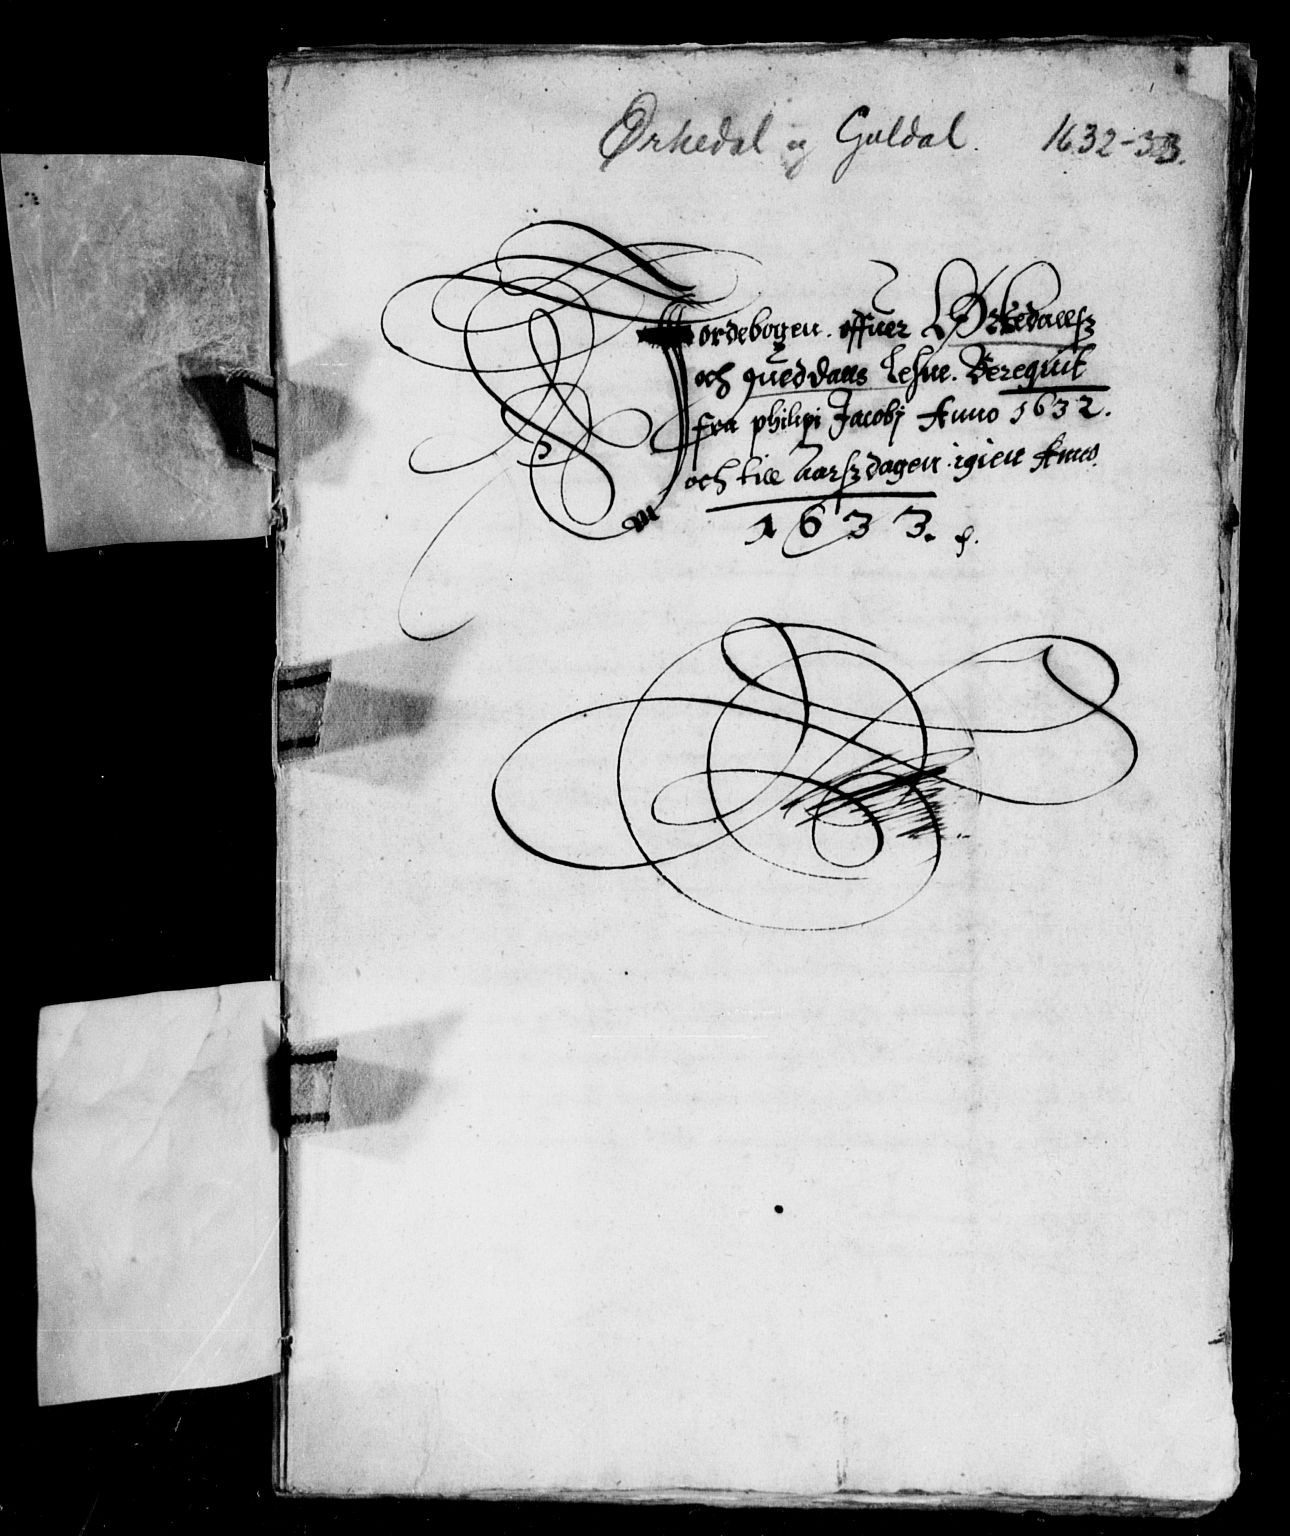 Ørkedal og Guldal. 1632-33.
Jordebogen offuer Ørkedallsz
och gueddalls Lehne. Beregnit
fra philipi Jacobj Anno 1632.
och till Aarszdagen igien Anno
1633.